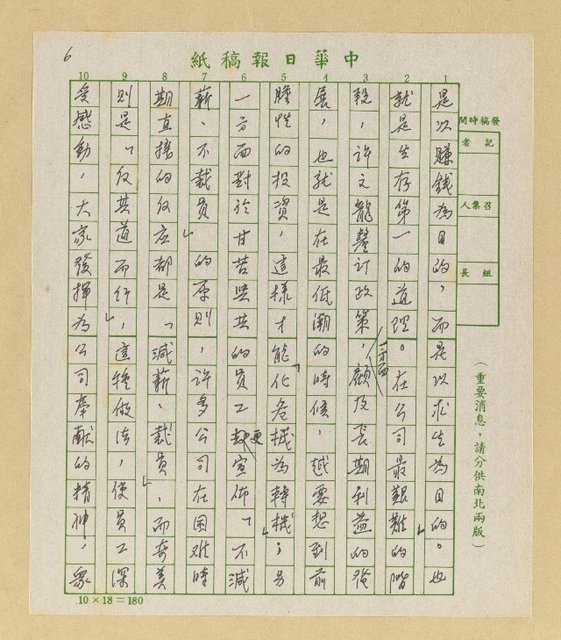 6
中華日報稿紙
10 9 8 7 6 5 4 3 2 1
發稿時間
記者
召集人
組長
(重要消息，請分供南北兩版)
是以賺錢為目的，而是以求生為目的。」也
就是生存第一的道理。在公司最艱難的階
段，許文龍釐訂政策，一方面顧及長期利益的發
展，也就是在最低潮的時候，越要想到前
瞻性的投資，這樣才能「化危機為轉機」；另
一方面對於甘苦與共的員工更宣佈「不減
薪、不裁員」的原則，許多公司在困難時
期直接的反應都是「減薪、裁員」，而奇美
則是「反其道而行」，這種做法，使員工深
受感動，大家發揮為公司奉獻的精神，眾
10×18=180